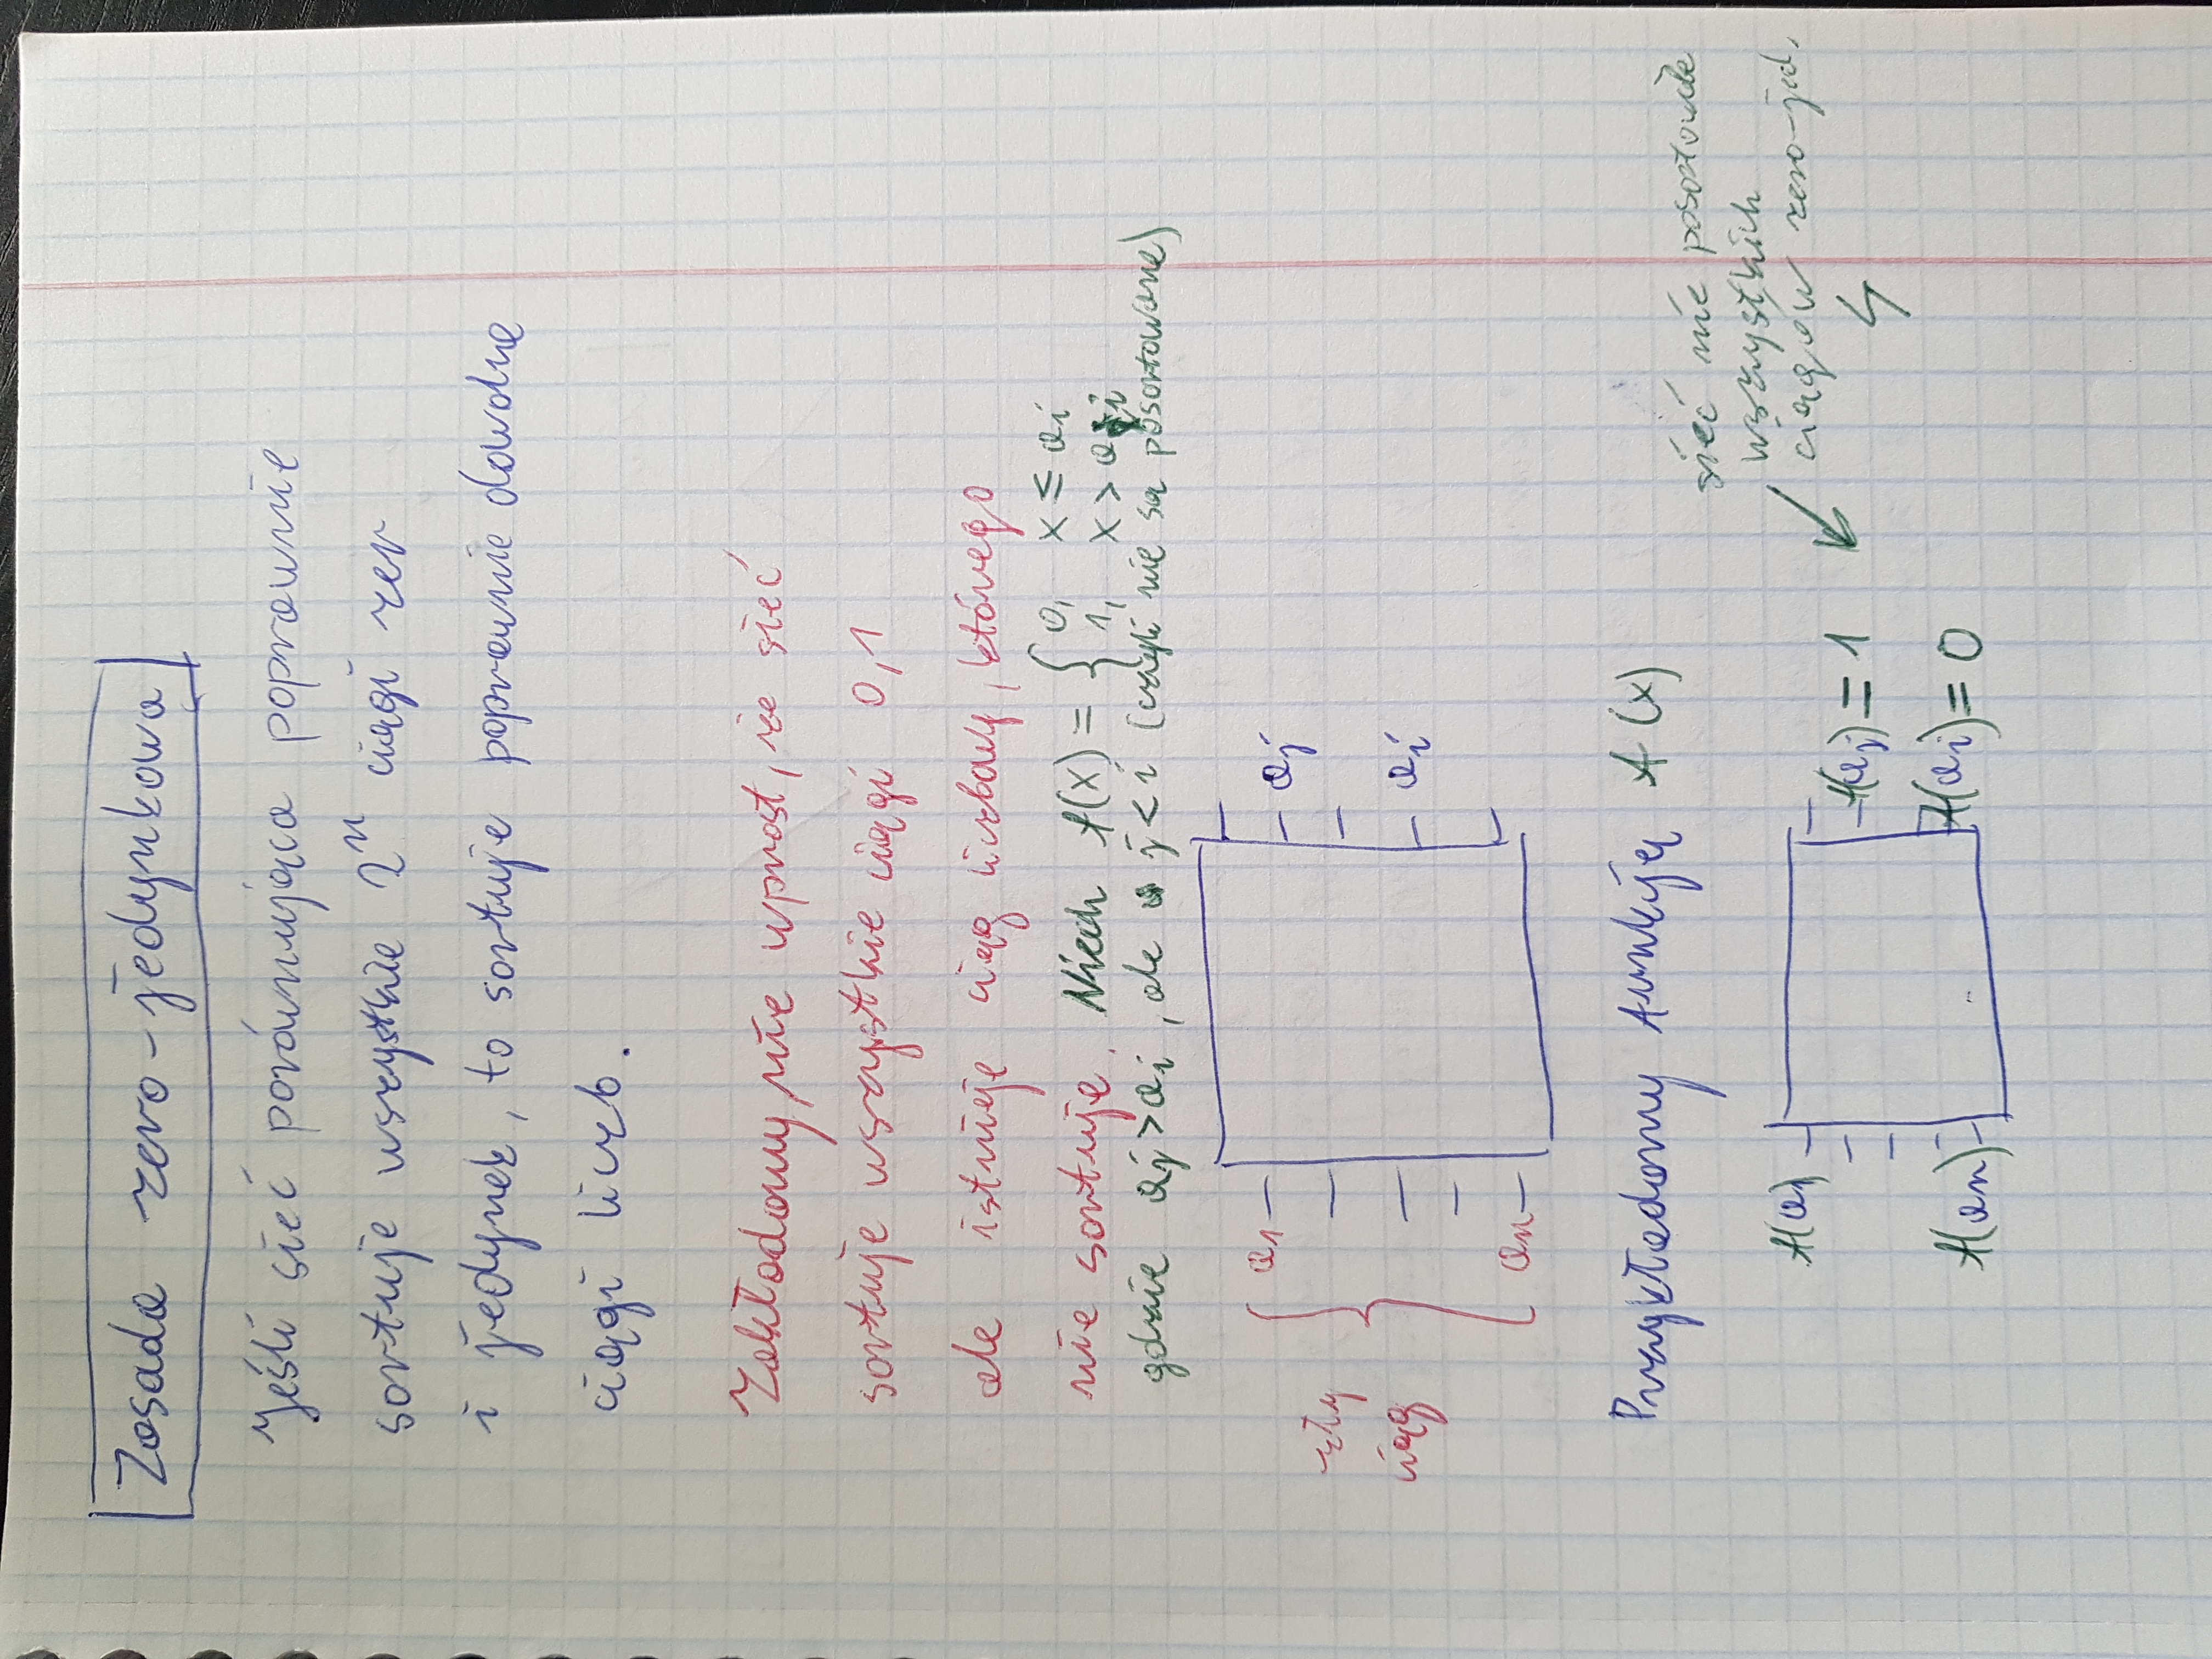 Zasada zero-jedynkowa
Jeśli sieć porównująca poprawnie
sortuje wszystkie 2ⁿ ciągi zer
i jedynek, to sortuje poprawnie dowolne
ciągi liczb.
Zakładamy nie wprost, że sieć
sortuje wszystkie ciągi 0,1
ale istnieje ciąg liczbowy, którego
nie sortuje. Niech f(x) = { 0, x ≤ ai
1, x > ai
gdzie aj > ai, ale j < i (czyli nie są posortowane)
zły
ciąg
a1
an
aj
ai
Przykładamy funkcję f(x)
f(a1)
f(an)
f(aj) = 1
f(ai) = 0
sieć nie posortowała
wszystkich
ciągów zero-jed.